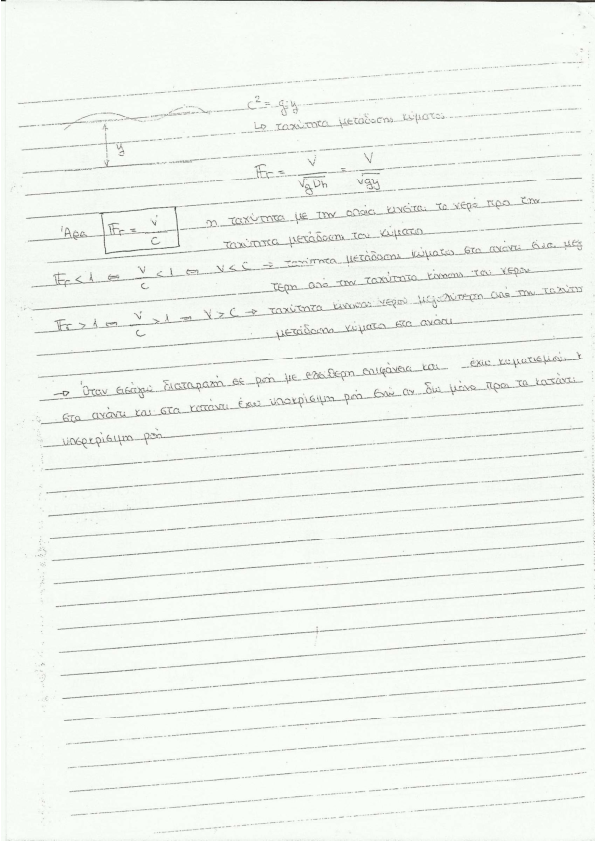 c² = g·y
↳ ταχύτητα μετάδοσης κύματος
y
Fr = V / √gDh = V / √gy
Άρα Fr = V / c η ταχύτητα με την οποία κινείται το νερό προς την
ταχύτητα μετάδοσης του κύματος
Fr < 1 ⇔ V / c < 1 ⇔ V < c → ταχύτητα μετάδοσης κύματος στα ανάντι είναι μεγ
τερη από την ταχύτητα κίνησης του νερού
Fr > 1 ⇔ V / c > 1 ⇔ V > c → ταχύτητα κίνησης νερού μεγαλύτερη από την ταχύτη
μετάδοσης κύματος στα ανάντι
→ Όταν εισάγω διαταραχή σε ροή με ελεύθερη επιφάνεια και έχω κυματισμού κ
στα ανάντι και στα κατάντι έχω υποκρίσιμη ροή ενώ αν δω μόνο προς τα κατάντι
υπερκρίσιμη ροή